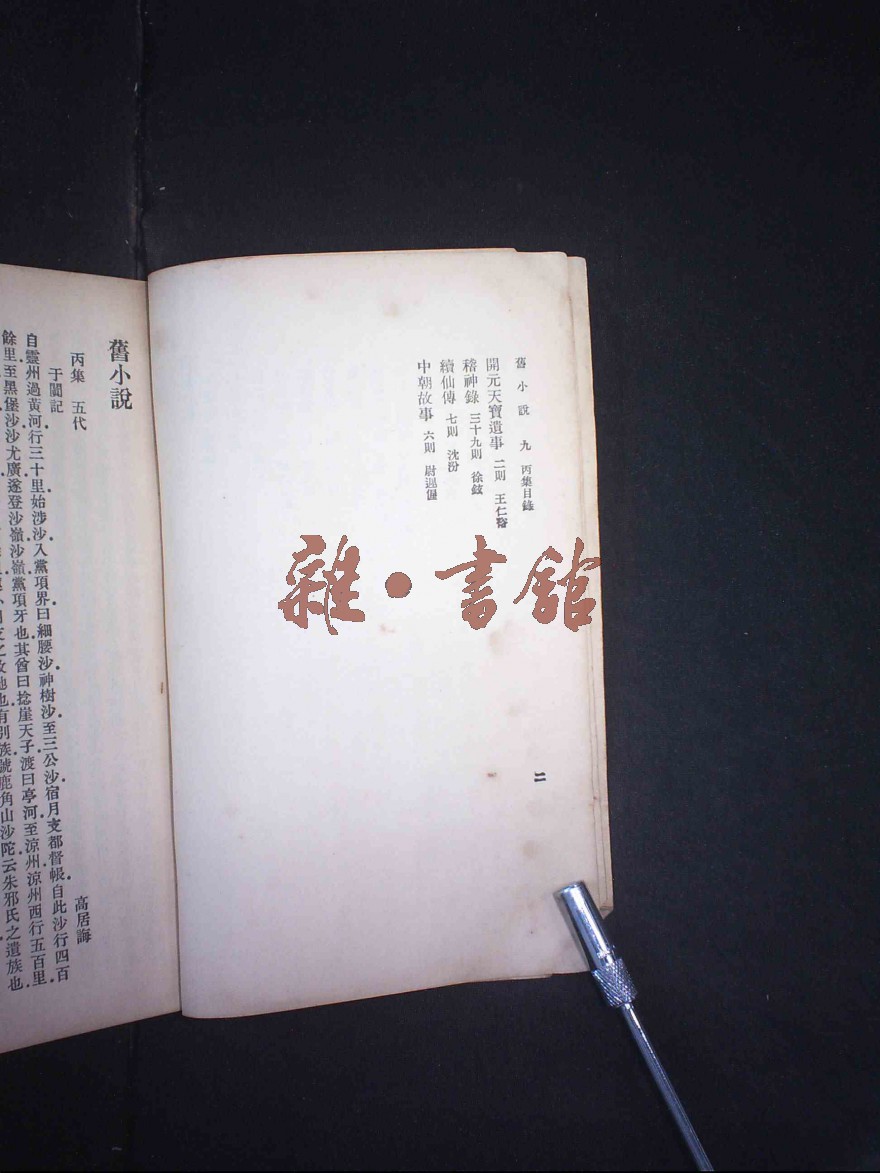 舊小說 九 丙集目錄 二
開元天寶遺事 二則 王仁裕
稽神錄 三十九則 徐鉉
續仙傳 七則 沈汾
中朝故事 六則 尉遲偓
舊小說
丙集 五代
于闐記 高居誨
自靈州過黃河行三十里始涉沙入黨項界曰細腰沙神樹沙至三公沙宿月支都督帳自此沙行四百
餘里至黑堡沙沙尤廣遂登沙嶺沙嶺黨項牙也其酋曰捻崖天子渡曰亭河至涼州涼州西行五百里
支之故地也有別族號鹿角山沙陀云朱邪氏之遺族也
雜·書館